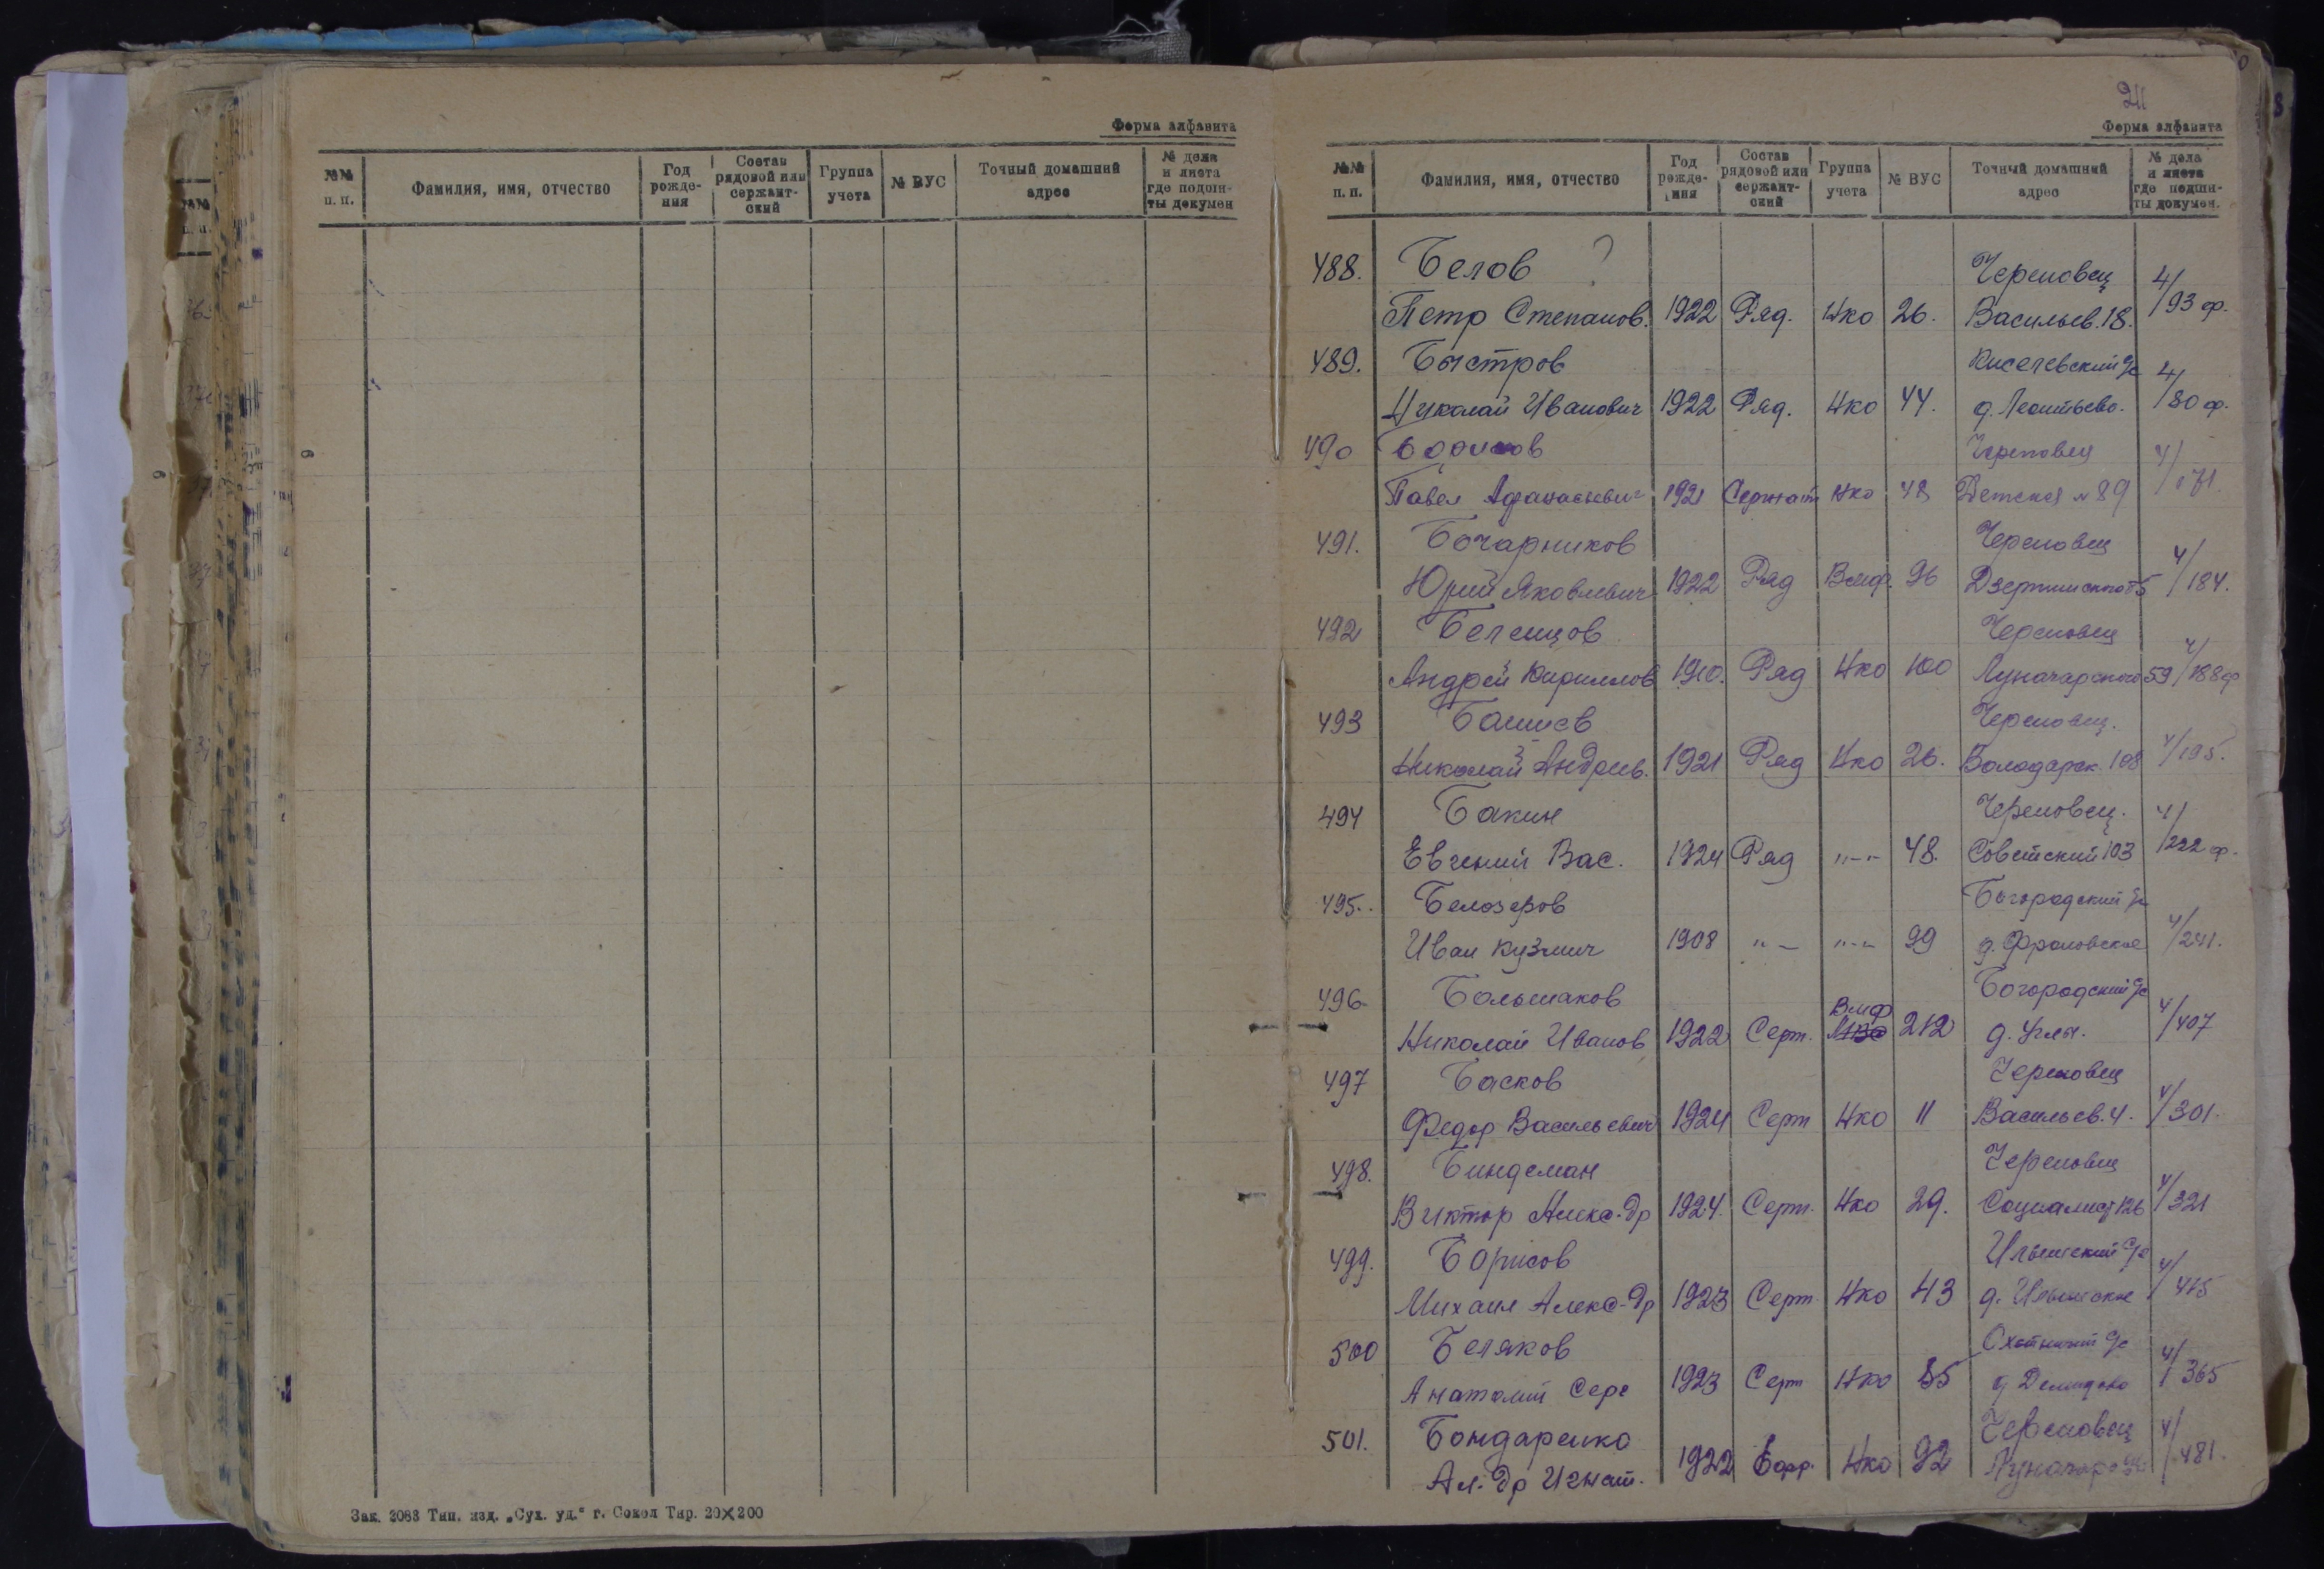 Форма алфавита
№№ п. п. Фамилия, имя, отчество Год рожде-ния Состав рядовой или сержант-ский Группа учета № ВУС Точный домашний адрес № дела и листа где подши-ты докумен
Зак. 2083 Тип. изд. „Сух. уд.“ г. Сокол Тир. 20×200
211
Форма алфавита
№№ п. п. Фамилия, имя, отчество Год рожде-ния Состав рядовой или сержант-ский Группа учета № ВУС Точный домашний адрес № дела и листа где подши-ты докумен.
488. Белов ? Череповец 4/93 ф.
Петр Степанов. 1922 Ряд. Нко 26. Васильев. 18.
489. Быстров Киселевский с/с 4/80 ф.
Николай Иванович 1922 Ряд. Нко 44. д. Леонтьево.
490 Борисов Череповец 4/171.
Павел Афанасьевич 1921 Сержант Нко 48 Детская № 89
491. Бочарников Череповец 4/184.
Юрий Яковлевич 1922 Ряд Вмф. 96 Дзержинского
492 Череповец 4/188 ф
Андрей Кириллов 1910. Ряд Нко 100 Луначарского 59
493 Череповец. 4/195.
Николай Андреев. 1921 Ряд Нко 26. Володарск. 108
494 Бакин Череповец. 4/222 ф.
Евгений Вас. 1924 Ряд "-" 48. Советский 103
495. Белозеров Богородский с/с 4/241.
Иван Кузмич 1908 "- "-" 99 д. Фроловское
496 Большаков Богородский с/с 4/407
Николай Иванов 1922 Серж. Вмф 212 д. Угла.
497 Басков Череповец 4/301.
Федор Васильевич 1924 Серж Нко 11 Васильев. 4.
498. Биндеман Череповец 4/321
Виктор Алекс-др 1924. Серж. Нко 29. Социалист 126
499. Борисов Ильинский с/с 4/415
Михаил Алекс-др 1923 Серж Нко 43 д. Ильинское
500 Беляков с/с 4/365
Анатолий Серг 1923 Серж Нко 85 д Демидово
501. Бондаренко Череповец 4/481.
Ал-др Игнат. 1922 Ефр. Нко 92 Луначарс